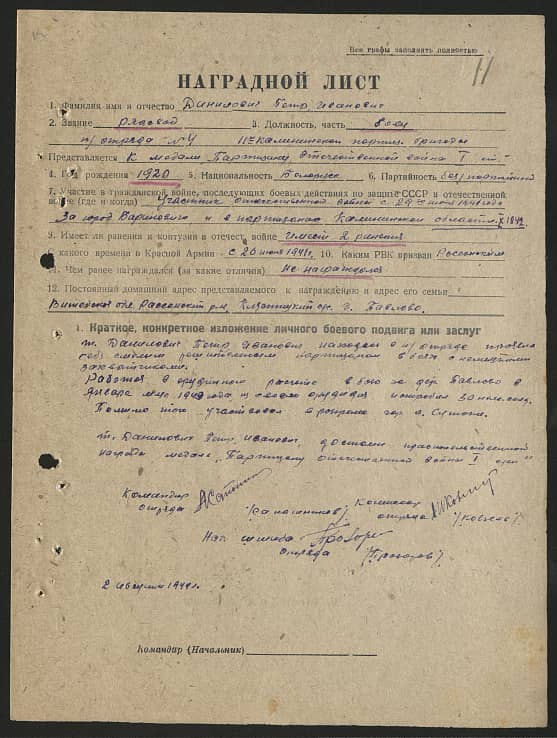 Все графы заполнять полностью
11
НАГРАДНОЙ ЛИСТ
1. Фамилия имя и отчество Данилович Петр Иванович
2. Звание рядовой 3. Должность, часть боец
п/отряда №4 11ой Калининской партиз. бригады
Представляется К медали Партизану Отечественной война I ст.
4. Год рождения 1920 5. Национальность Белорус 6. Партийность без/партийный
7. Участие в гражданской войне, последующих боевых действиях по защите СССР и отечественной
войне (где и когда) Участник отечественной войны с 1941 года
За город и в партизанах Калининской области с X 1942
9. Имеет ли ранения и контузии в отечест. войне имеет 2 ранения
С какого времени в Красной Армии с 26 июня 1941 г. 10. Каким РВК призван Россонским
11. Чем ранее награждался (за какие отличия) не награждался
12. Постоянный домашний адрес представляемого к награждению и адрес его семьи
Витебская обл. Россонский р-н, д. Павлово.
1. Краткое, конкретное изложение личного боевого подвига или заслуг
т. Данилович Петр Иванович находясь в п/отряде проявил
себя смелым решительным партизаном в боях с немецкими
захватчиками.
Работая в орудийном расчете в бою за дер. Павлово в
Января м-це года, из своего орудия истребил 30 нем. солд.
Помимо того участвовал в
т. Данилович Петр Иванович, достоин правительственной
награды медали „Партизану отечественной войны I степ."
Командир
отряда
Комиссар
отряда /Ковалев/
Нач штаба
отряда /Прохоров/
2 1944 г.
Командир (Начальник)